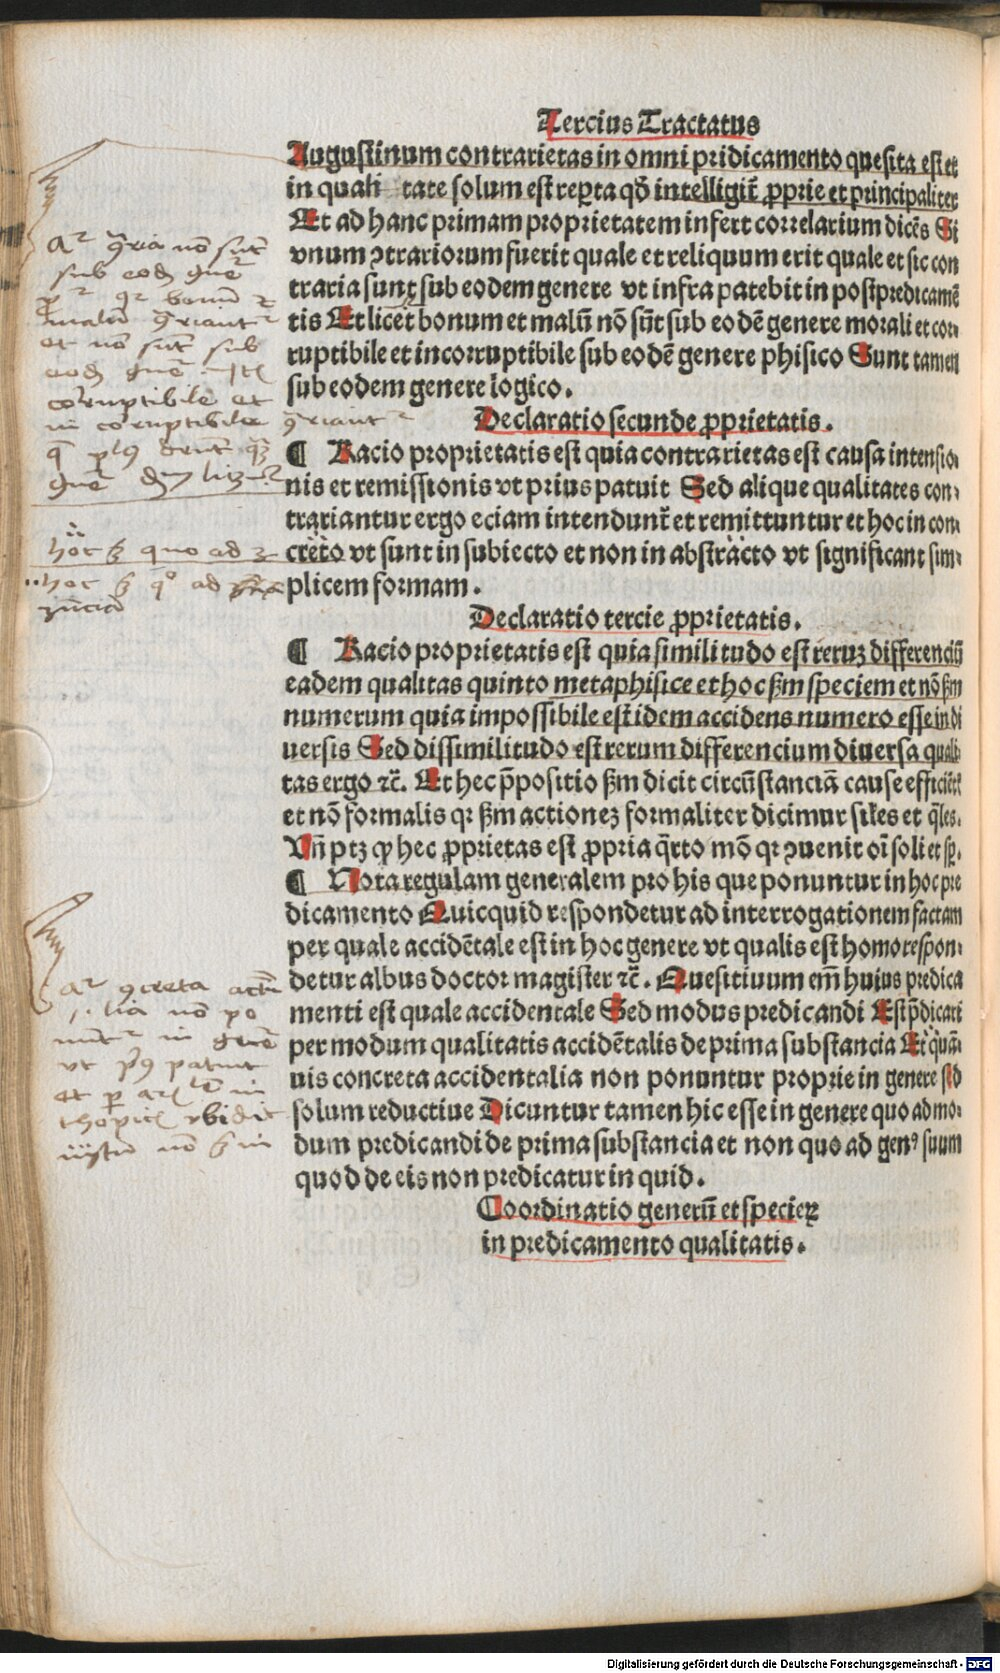 Tercius Tractatus
Augustinum contrarietas in omni pridicamento quesita est et
in quali tate solum est reꝑta qđ intelligit̃ ꝓprie et principaliter
Et ad hanc primam proprietatem infert correlarium dicẽs Si
vnum ↄtrariorum fuerit quale et reliquum erit quale et sic con
traria sunt sub eodem genere vt infra patebit in postpredicamẽ
tis Et licet bonum et malũ nõ sũt sub eodẽ genere morali et cor-
ruptibile et incorruptibile sub eodẽ genere phisico Sunt tamen
sub eodem genere logico.
Declaratio secunde ꝓprietatis.
¶ Racio proprietatis est quia contrarietas est causa intensio-
nis et remissionis vt prius patuit Sed alique qualitates con-
trariantur ergo eciam intendunt̃ et remittuntur et hoc in con-
creto vt sunt in subiecto et non in abstracto vt significant sim-
plicem formam.
Declaratio tercie ꝓprietatis.
¶ Racio proprietatis est quia similitudo est reruꝫ differenciũ
eadem qualitas quinto metaphisice et hoc ẜm speciem et nõ ẜm
numerum quia impossibile est idem accidens numero esse in di
uersis Sed dissimilitudo est rerum differencium diuersa quali
tas ergo ⁊c̃. Et hec p̄positio ẜm dicit circũstanciã cause efficiẽt
et nõ formalis qꝛ ẜm actioneꝫ formaliter dicimur siles et q̃les.
Vñ ptꝫ ꝙ hec ꝓprietas est ꝓpria q̃rto mõ qꝛ ↄuenit oĩ soli et sp̱.
¶ Nota regulam generalem pro his que ponuntur in hoc pre
dicamento Quicquid respondetur ad interrogationem factam
per quale accidẽtale est in hoc genere vt qualis est homo respon-
detur albus doctor magister ⁊c̃. Quesitiuum em̃ huius predica
menti est quale accidentale Sed modus predicandi Est p̃dicari
per modum qualitatis accidẽtalis de prima substancia Et quã-
uis concreta accidentalia non ponuntur proprie in genere sed
solum reductiue Dicuntur tamen hic esse in genere quo ad mo-
dum predicandi de prima substancia et non quo ad genꝰ suum
quod de eis non predicatur in quid.
Coordinatio generũ et specieꝝ
in predicamento qualitatis.
nõ sũt
sub eod
bonũ
malũ
et nõ sũt sub
corruptibile et
in corruptibile
hoc quo ad
hoc ad
ↄcreta
nõ po
in gene
vt patuit
et in
nõ in
Digitalisierung gefördert durch die Deutsche Forschungsgemeinschaft - DFG